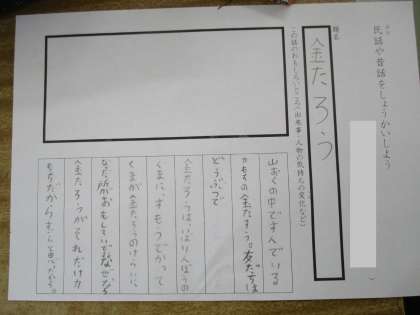 民話や昔話をしょうかいしよう
題名
金たろう
お話のおもしろいところ(出来事・人物の気持ちの変化など)
山おくの中ですんでいる
力もちの金たろう。友だちは
どうぶつで
金たろうはいばりんぼうの
くまに、すもうでかって
くまが金たろうのけらいに
なった所がおもしろい
金たろうがそれだけ力
もちだから